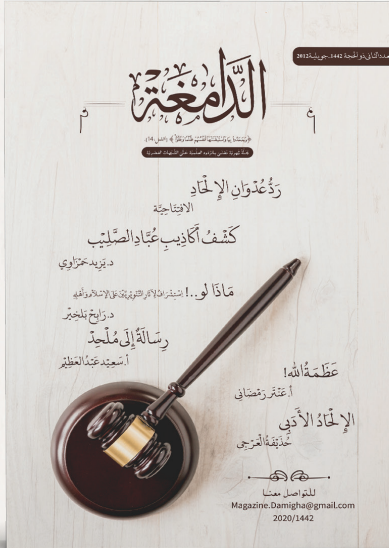 العدد الثاني ذو الحجة 1442. جويلية 2012
الدَّامِغَة
﴿وَجَحَدُوا بِهَا وَاسْتَيْقَنَتْهَا أَنْفُسُهُمْ ظُلْمًا وَعُلُوًّا﴾ (النمل: 14).
مجلة شهرية تعنى بالردود العلمية على الشبهات العصرية
رَدُّ عُدْوَانِ الإِلْحَادِ
الافتِتَاحِيَّة
كَشْفُ أَكَاذِيبِ عُبَّادِ الصَّلِيْبِ
د. يَزِيد حَمْزَاوِي
مَاذَا لَو..! اِسْتِشْرَافٌ لِآثَارِ التَّنْوِيرِيِّيْنَ عَلَى الإِسْلَامِ وَأَهْلِهِ
د. رَابِح بَلْخَيْر
رِسَالَةٌ إِلَى مُلْحِدٍ
أ. سَعِيْد عَبْدُ العَظِيْم
عَظَمَةُ الله!
أ. عَنْتَر رَمَضَانِي
الإِلْحَادُ الأَدَبِي
حُذَيْفَةُ العَرْجِي
للتواصل معنا
Magazine.Damigha@gmail.com
2020/1442